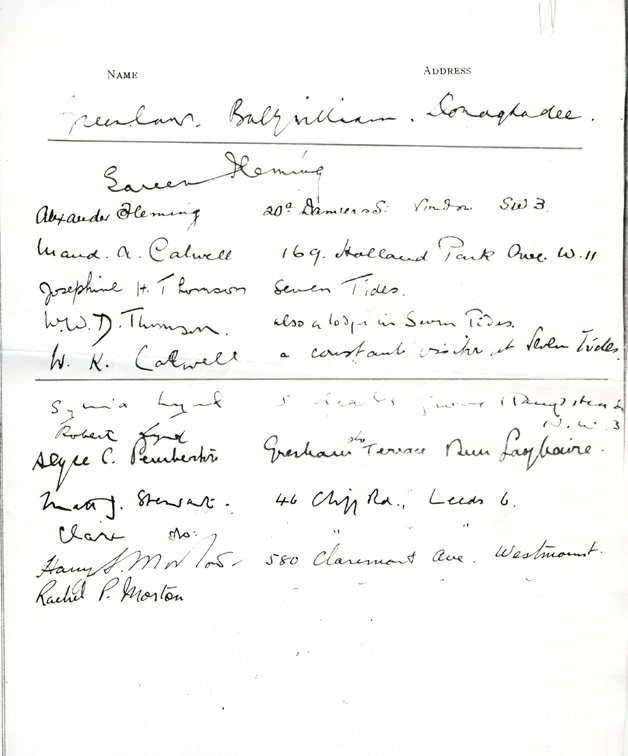 NAME ADDRESS
Greenlaw. Ballywilliam. Donaghadee.
Sareen Fleming
Alexander Fleming 20a Danvers St. London SW3
Maud. A. Calwell 169. Holland Park Ave. W.11
Josephine H. Thomson Seven Tides.
W.W.D. Thomson. also a lodger in Seven Tides.
W. K. Calwell a constant visitor at Seven Tides.
Sylvia Lynd 5 Keats Grove Hampstead
N.W.3
Robert Lynd
C. Pemberton Gresham Terrace Dun Laoghaire.
Stewart. 46 Cliff Rd., Leeds 6.
Clare do: " "
Harry S. Morton 580 Claremont Ave. Westmount.
Rachel P. Morton